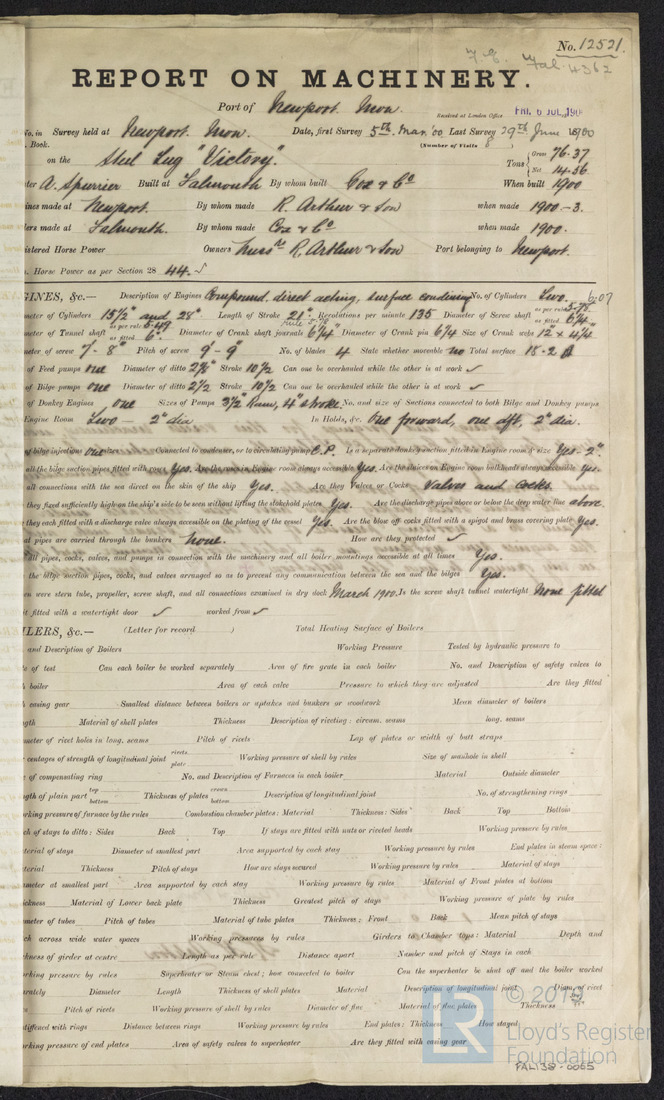 No. 12521.
Fal. 4362
REPORT ON MACHINERY.
Port of Newport Mon.
Received at London Office FRI. 6 JUL. 190
No. in Survey held at Newport Mon. Date, first Survey 5th Mar. 00 Last Survey 29th June 1900
Book. (Number of Visits 8
on the Steel Tug "Victory". Tons Gross 76.37 Net 14.56
A. Spurrier Built at Falmouth By whom built Cox & Co When built 1900
made at Newport. By whom made R. Arthur & Son when made 1900-3.
made at Falmouth. By whom made Cox & Co when made 1900.
Horse Power Owners Messrs R. Arthur & Son Port belonging to Newport.
Horse Power as per Section 28 44. ✓
GINES, &c.— Description of Engines Compound direct acting, surface condensing No. of Cylinders Two. 6.07
of Cylinders 15½" and 28" Length of Stroke 21" Revolutions per minute 135 Diameter of Screw shaft as per rule 5.78 as fitted 6¼"
of Tunnel shaft as per rule 5.49 as fitted 6" Diameter of Crank shaft journals 6¼" Diameter of Crank pin 6¼ Size of Crank webs 12" x 4¼"
of screw 7'-8" Pitch of screw 9'-9" No. of blades 4 State whether moveable no Total surface 18.2
of Feed pumps one Diameter of ditto 2½" Stroke 10½ Can one be overhauled while the other is at work ✓
of Bilge pumps one Diameter of ditto 2½ Stroke 10½ Can one be overhauled while the other is at work ✓
of Donkey Engines one Sizes of Pumps 3½" Ram, 4" stroke. No. and size of Suctions connected to both Bilge and Donkey pumps
Engine Room Two - 2" dia In Holds, &c. One forward, one aft, 2" dia.
of bilge injections one Connected to condenser, or to circulating pump C.P. Is a separate donkey suction fitted in Engine room & size Yes - 2".
all the bilge suction pipes fitted with roses Yes. Are the roses in Engine room always accessible Yes. Are the sluices on Engine room bulkheads always accessible Yes.
all connections with the sea direct on the skin of the ship Yes. Are they Valves or Cocks Valves and cocks.
they fixed sufficiently high on the ship's side to be seen without lifting the stokehold plates Yes. Are the discharge pipes above or below the deep water line above
they each fitted with a discharge valve always accessible on the plating of the vessel Yes. Are the blow off cocks fitted with a spigot and brass covering plate Yes.
pipes are carried through the bunkers None. How are they protected ✓
all pipes, cocks, valves, and pumps in connection with the machinery and all boiler mountings accessible at all times Yes.
the bilge suction pipes, cocks, and valves arranged so as to prevent any communication between the sea and the bilges Yes.
were stern tube, propeller, screw shaft, and all connections examined in dry dock March 1900. Is the screw shaft tunnel watertight None fitted
it fitted with a watertight door ✓ worked from ✓
ILERS, &c.— (Letter for record ) Total Heating Surface of Boilers
and Description of Boilers Working Pressure Tested by hydraulic pressure to
of test Can each boiler be worked separately Area of fire grate in each boiler No. and Description of safety valves to
boiler Area of each valve Pressure to which they are adjusted Are they fitted
easing gear Smallest distance between boilers or uptakes and bunkers or woodwork Mean diameter of boilers
Material of shell plates Thickness Description of riveting: circum. seams long. seams
of rivet holes in long. seams Pitch of rivets Lap of plates or width of butt straps
centages of strength of longitudinal joint rivets plate Working pressure of shell by rules Size of manhole in shell
of compensating ring No. and Description of Furnaces in each boiler Material Outside diameter
of plain part top bottom Thickness of plates crown bottom Description of longitudinal joint No. of strengthening rings
pressure of furnace by the rules Combustion chamber plates: Material Thickness: Sides Back Top Bottom
of stays to ditto: Sides Back Top If stays are fitted with nuts or riveted heads Working pressure by rules
of stays Diameter at smallest part Area supported by each stay Working pressure by rules End plates in steam space:
Thickness Pitch of stays How are stays secured Working pressure by rules Material of stays
at smallest part Area supported by each stay Working pressure by rules Material of Front plates at bottom
Material of Lower back plate Thickness Greatest pitch of stays Working pressure of plate by rules
of tubes Pitch of tubes Material of tube plates Thickness: Front Back Mean pitch of stays
across wide water spaces Working pressures by rules Girders to Chamber tops: Material Depth and
of girder at centre Length as per rule Distance apart Number and pitch of Stays in each
pressure by rules Superheater or Steam chest; how connected to boiler Can the superheater be shut off and the boiler worked
Diameter Length Thickness of shell plates Material Description of longitudinal joint Diam. of rivet
Pitch of rivets Working pressure of shell by rules Diameter of flue Material of flue plates Thickness
stiffened with rings Distance between rings Working pressure by rules End plates: Thickness How stayed
pressure of end plates Area of safety valves to superheater Are they fitted with easing gear
LR
© 2019
Lloyd's Register
Foundation
FAL138-0065